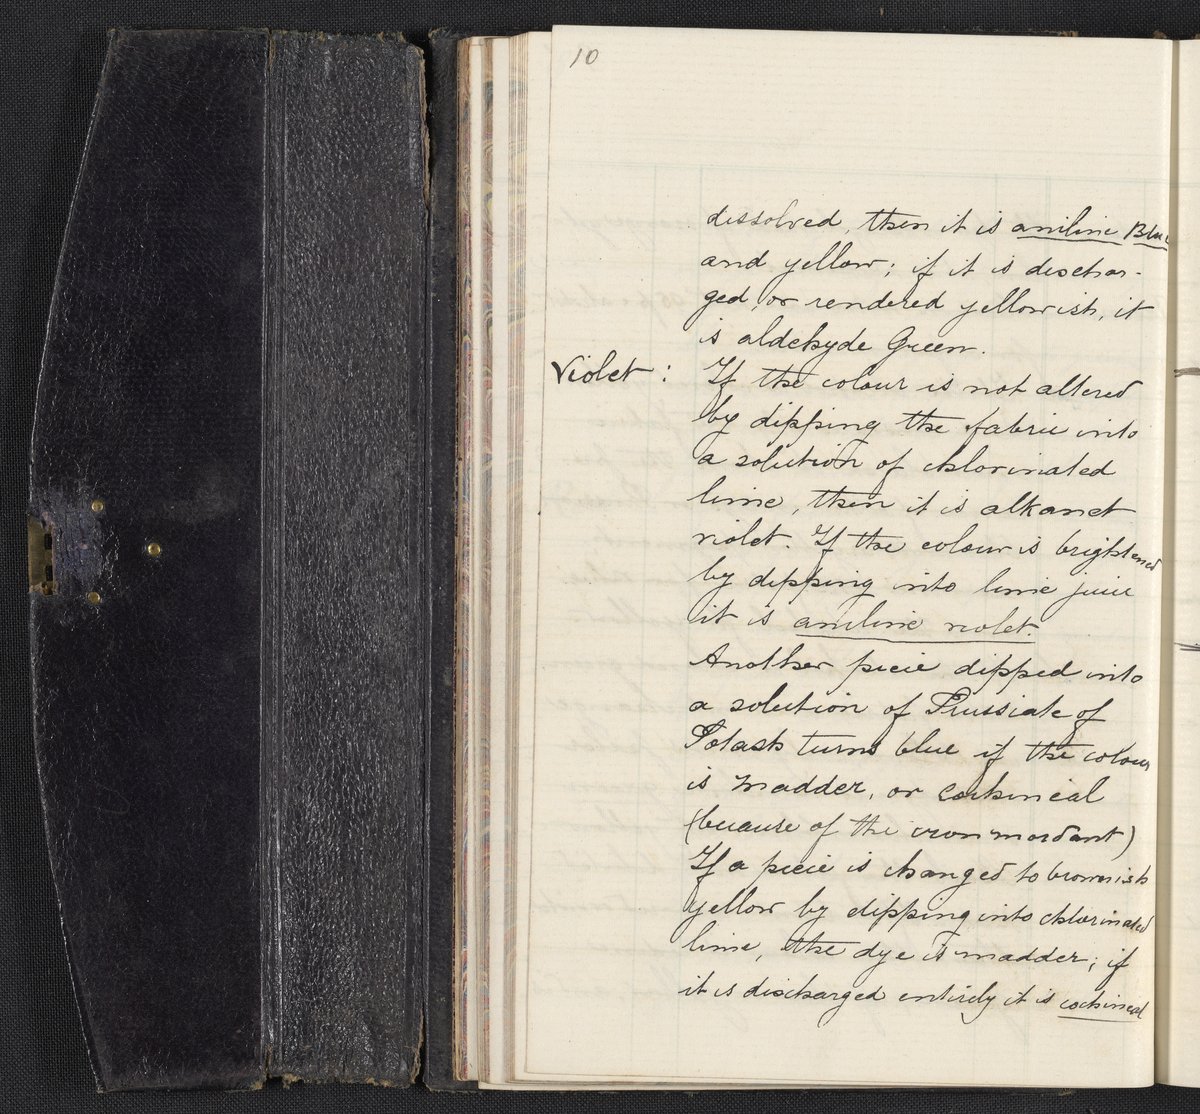 10
dissolved, then it is aniline Blue
and yellow; if it is dischar-
ged, or rendered yellowish, it
is aldehyde Green.
Violet: If the colour is not altered
by dipping the fabric into
a solution of chlorinated
lime, then it is alkanet
violet. If the colour is brightened
by dipping into lime juice
it is aniline violet.
Another piece dipped into
a solution of Prussiate of
Potash turns blue if the colour
is madder, or cochineal
(because of the iron mordant)
If a piece is changed to brownish
yellow by dipping into chlorinated
lime, the dye is madder; if
it is discharged entirely it is cochineal